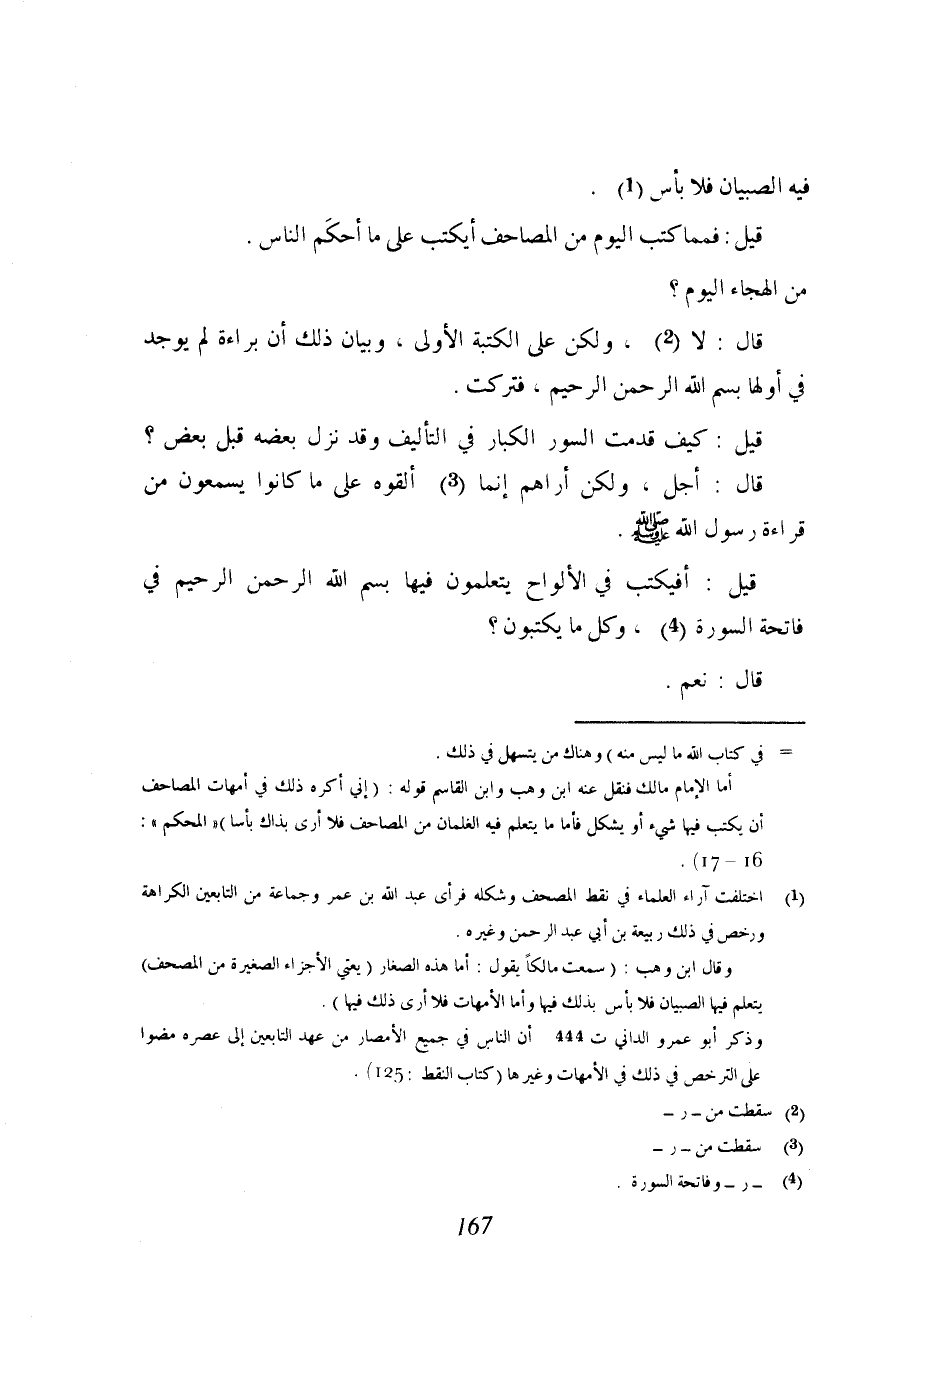 فيه الصبيان فلا بأس (1) .
قيل : فمماكتب اليوم من المصاحف أيكتب على ما أحكَم الناس .
من الهجاء اليوم ؟
قال : لا (2) ، ولكن على الكتبة الأولى ، وبيان ذلك أن براءة لم يوجد
في أولها بسم الله الرحمن الرحيم ، فتركت .
قيل : كيف قدمت السور الكبار في التأليف وقد نزل بعضه قبل بعض ؟
قال : أجل ، ولكن أراهم إنما (3) ألقوه على ما كانوا يسمعون من
قراءة رسول الله ﷺ .
قيل : أفيكتب في الألواح يتعلمون فيها بسم الله الرحمن الرحيم في
فاتحة السورة (4) ، وكل ما يكتبون ؟
قال : نعم .
= في كتاب الله ما ليس منه ) وهناك من يتسهل في ذلك .
أما الإمام مالك فنقل عنه ابن وهب وابن القاسم قوله : ( إني أكره ذلك في أمهات المصاحف
أن يكتب فيها شيء أو يشكل فأما ما يتعلم فيه الغلمان من المصاحف فلا أرى بذاك بأسا )« المحكم » :
16 – 17) .
(1) اختلفت آراء العلماء في نقط المصحف وشكله فرأى عبد الله بن عمر وجماعة من التابعين الكراهة
ورخص في ذلك ربيعة بن أبي عبد الرحمن وغيره .
وقال ابن وهب : ( سمعت مالكاً يقول : أما هذه الصغار ( يعني الأجزاء الصغيرة من المصحف)
يتعلم فيها الصبيان فلا بأس بذلك فيها وأما الأمهات فلا أرى ذلك فيها ) .
وذكر أبو عمرو الداني ت 444 أن الناس في جميع الأمصار من عهد التابعين إلى عصره مضوا
على الترخص في ذلك في الأمهات وغيرها (كتاب النقط : 125) .
(2) سقطت من – ر –
(3) سقطت من – ر –
(4) – ر – وفاتحة السورة .
167